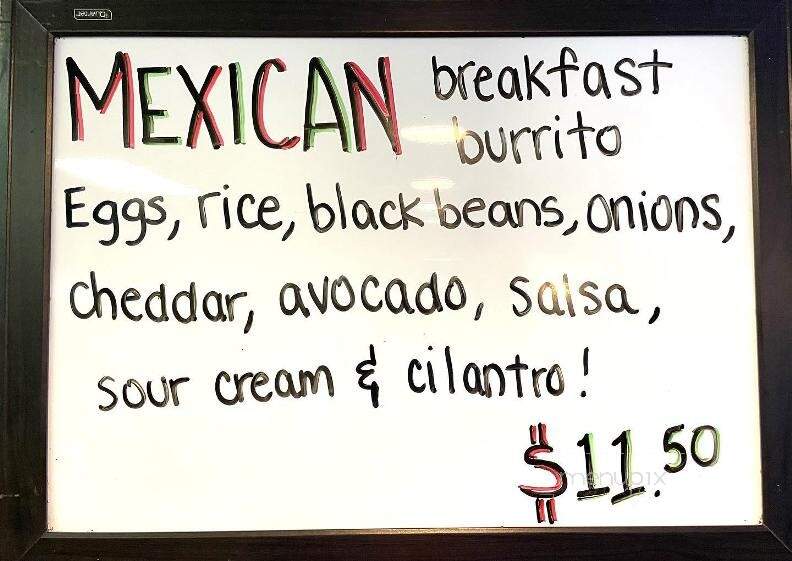 Quartet
MEXICAN breakfast
burrito
Eggs, rice, black beans, onions,
cheddar, avocado, salsa,
sour cream & cilantro!
$11.50
menupix